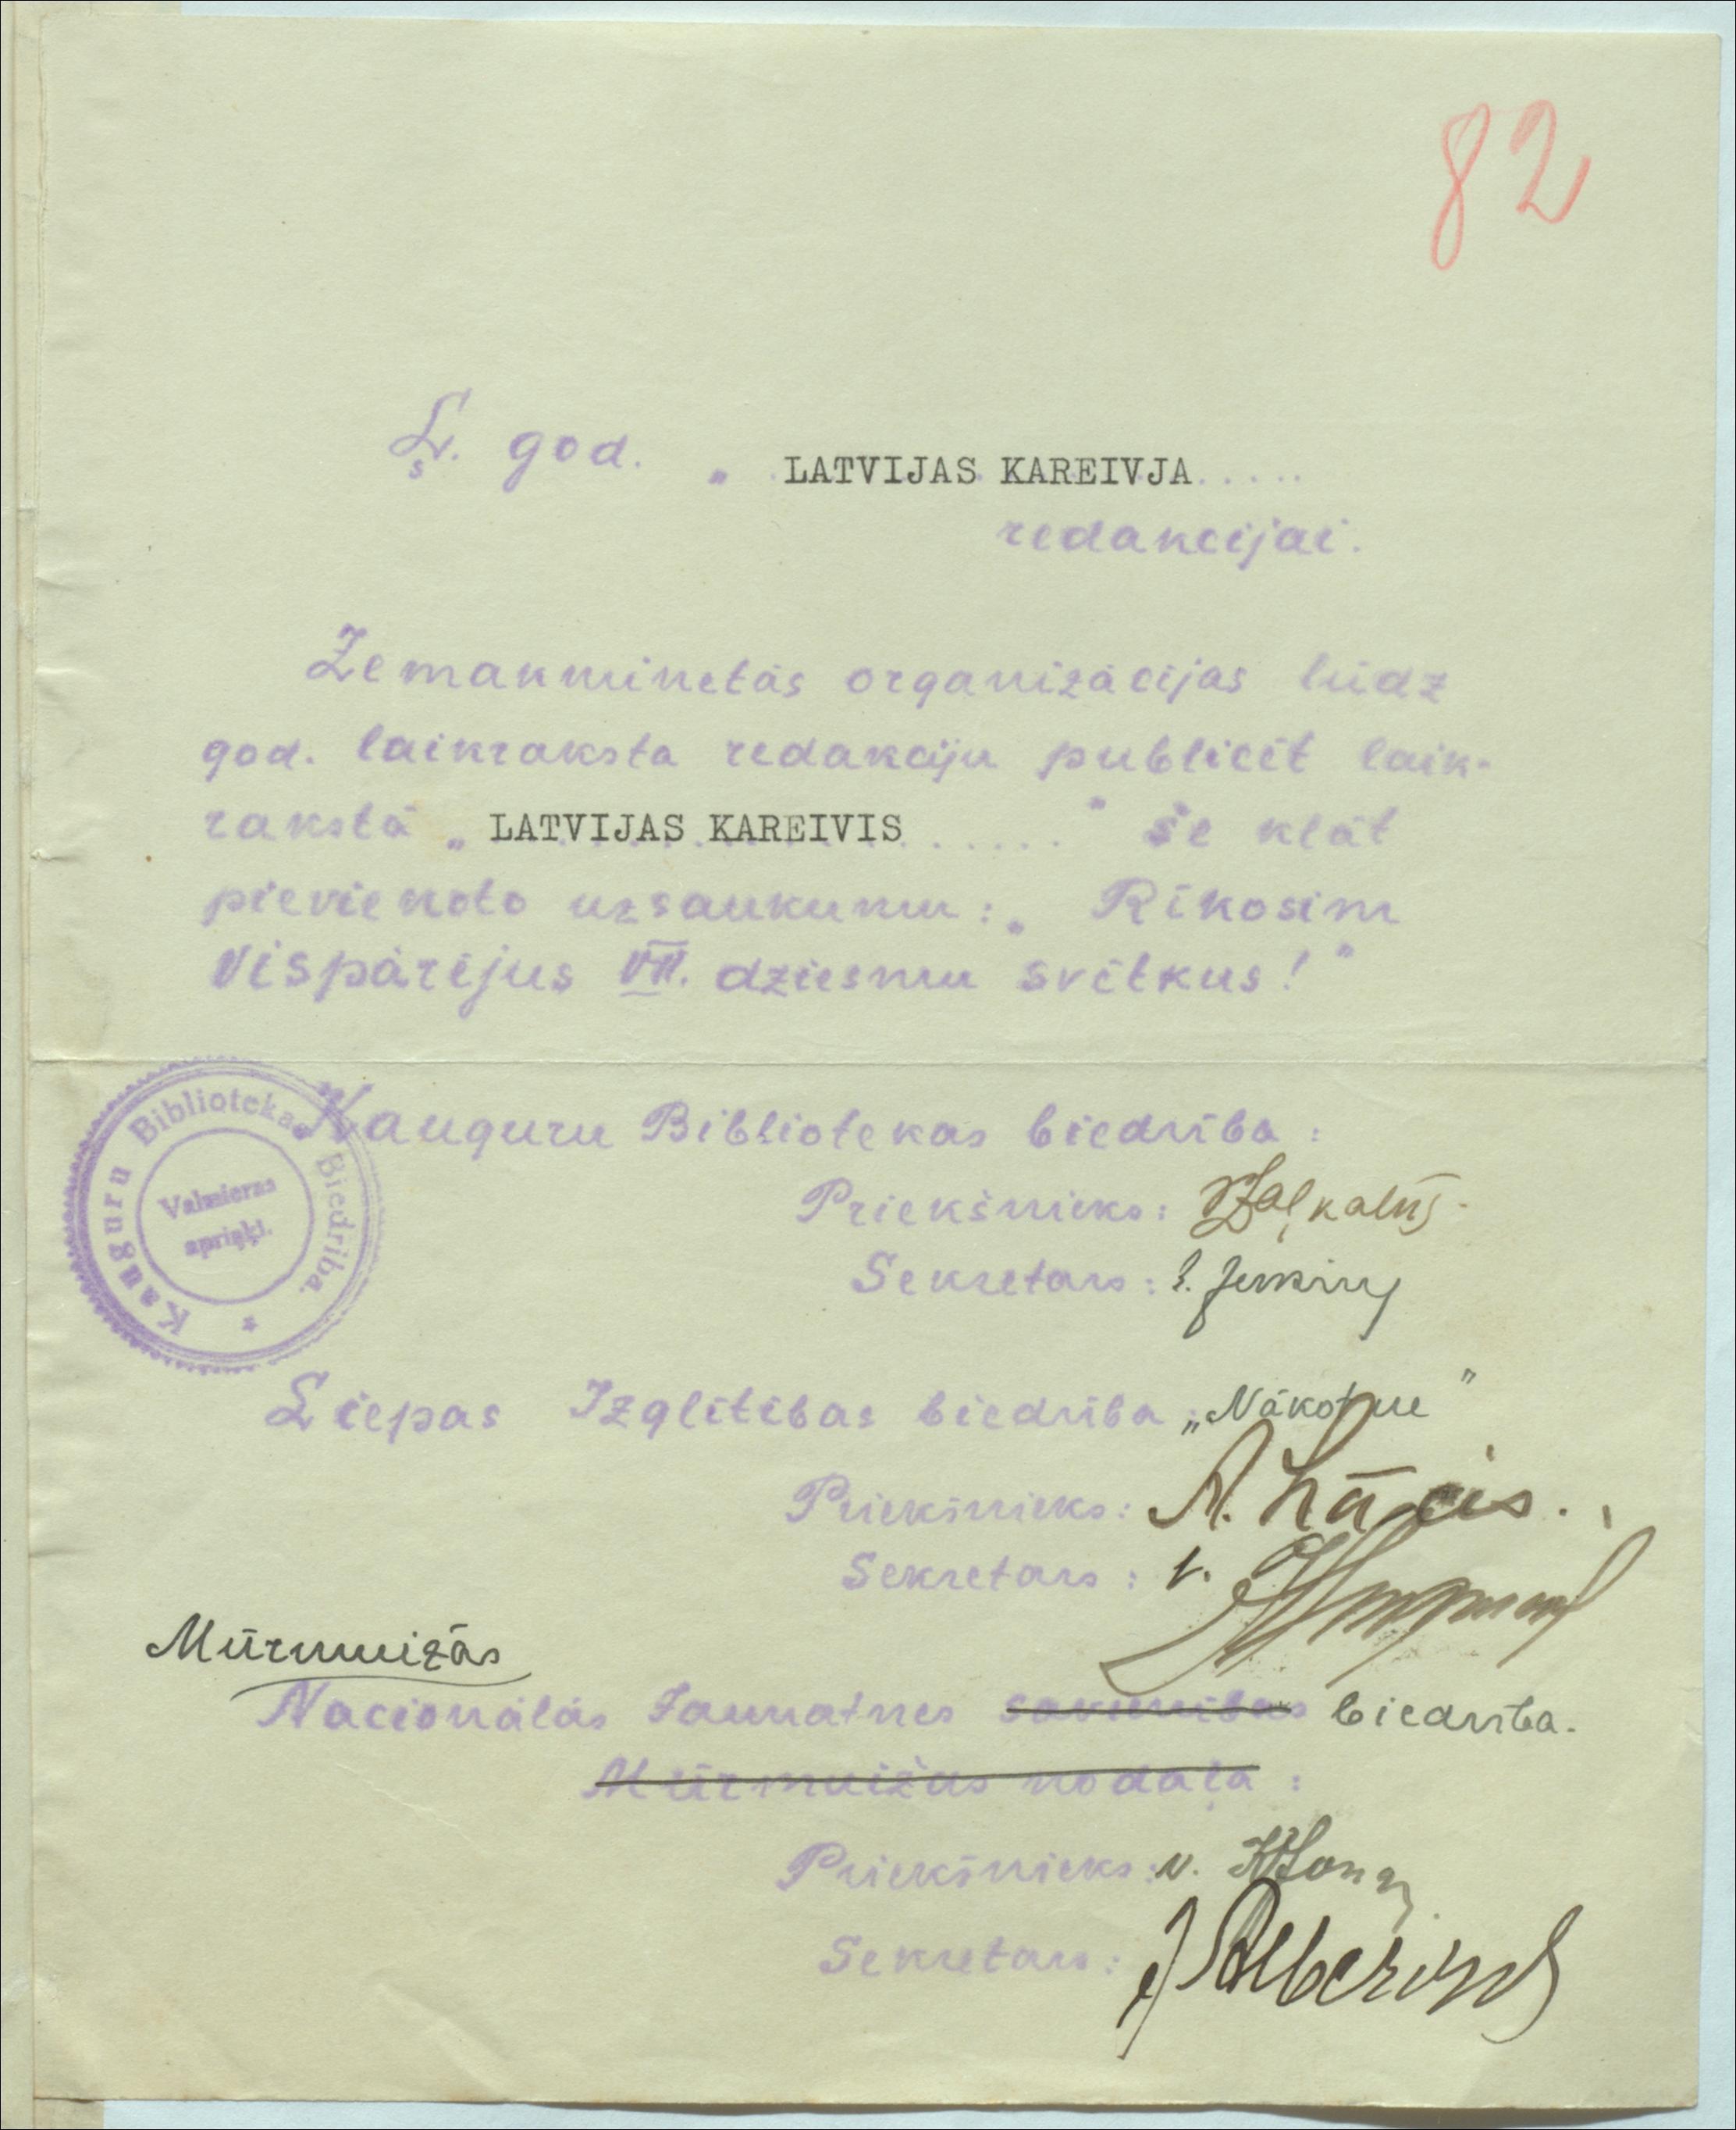 82
Ļ. god. „ LATVIJAS KAREIVJA.....
redakcijai.
Zemakminētās organizācijas lūdz
god. laikraksta redakciju publicēt laik-
rakstā „ LATVIJAS KAREIVIS ..... " še klāt
pievienoto uzsaukumu: „ Rīkosim
Vispārējus VII. dziesmu svētkus! "
Kauguru Bibliotekas Biedrība.
Valmieras
apriņķi.
Kauguru Bibliotekas biedrība :
Priekšnieks: Zaļkalnš.
Sekretars:
Liepas Izglītības biedrība „Nākotne"
Priekšnieks: A. Lācis.
Sekretars: v.
Mūrmuižās
Nacionālās Jaunatnes savienības biedrība.
Mūrmuižas nodaļa :
Priekšnieks: v.
Sekretars: J.